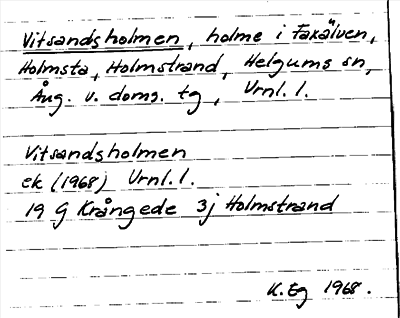 Vitsandsholmen, holme i Faxälven,
Holmsta, Holmstrand, Helgums sn,
Ång. v. doms. tg, Vrnl. l.
Vitsandsholmen
ek (1968) Vrnl. l.
19 G Krångede 3j Holmstrand
K. Eg 1968.